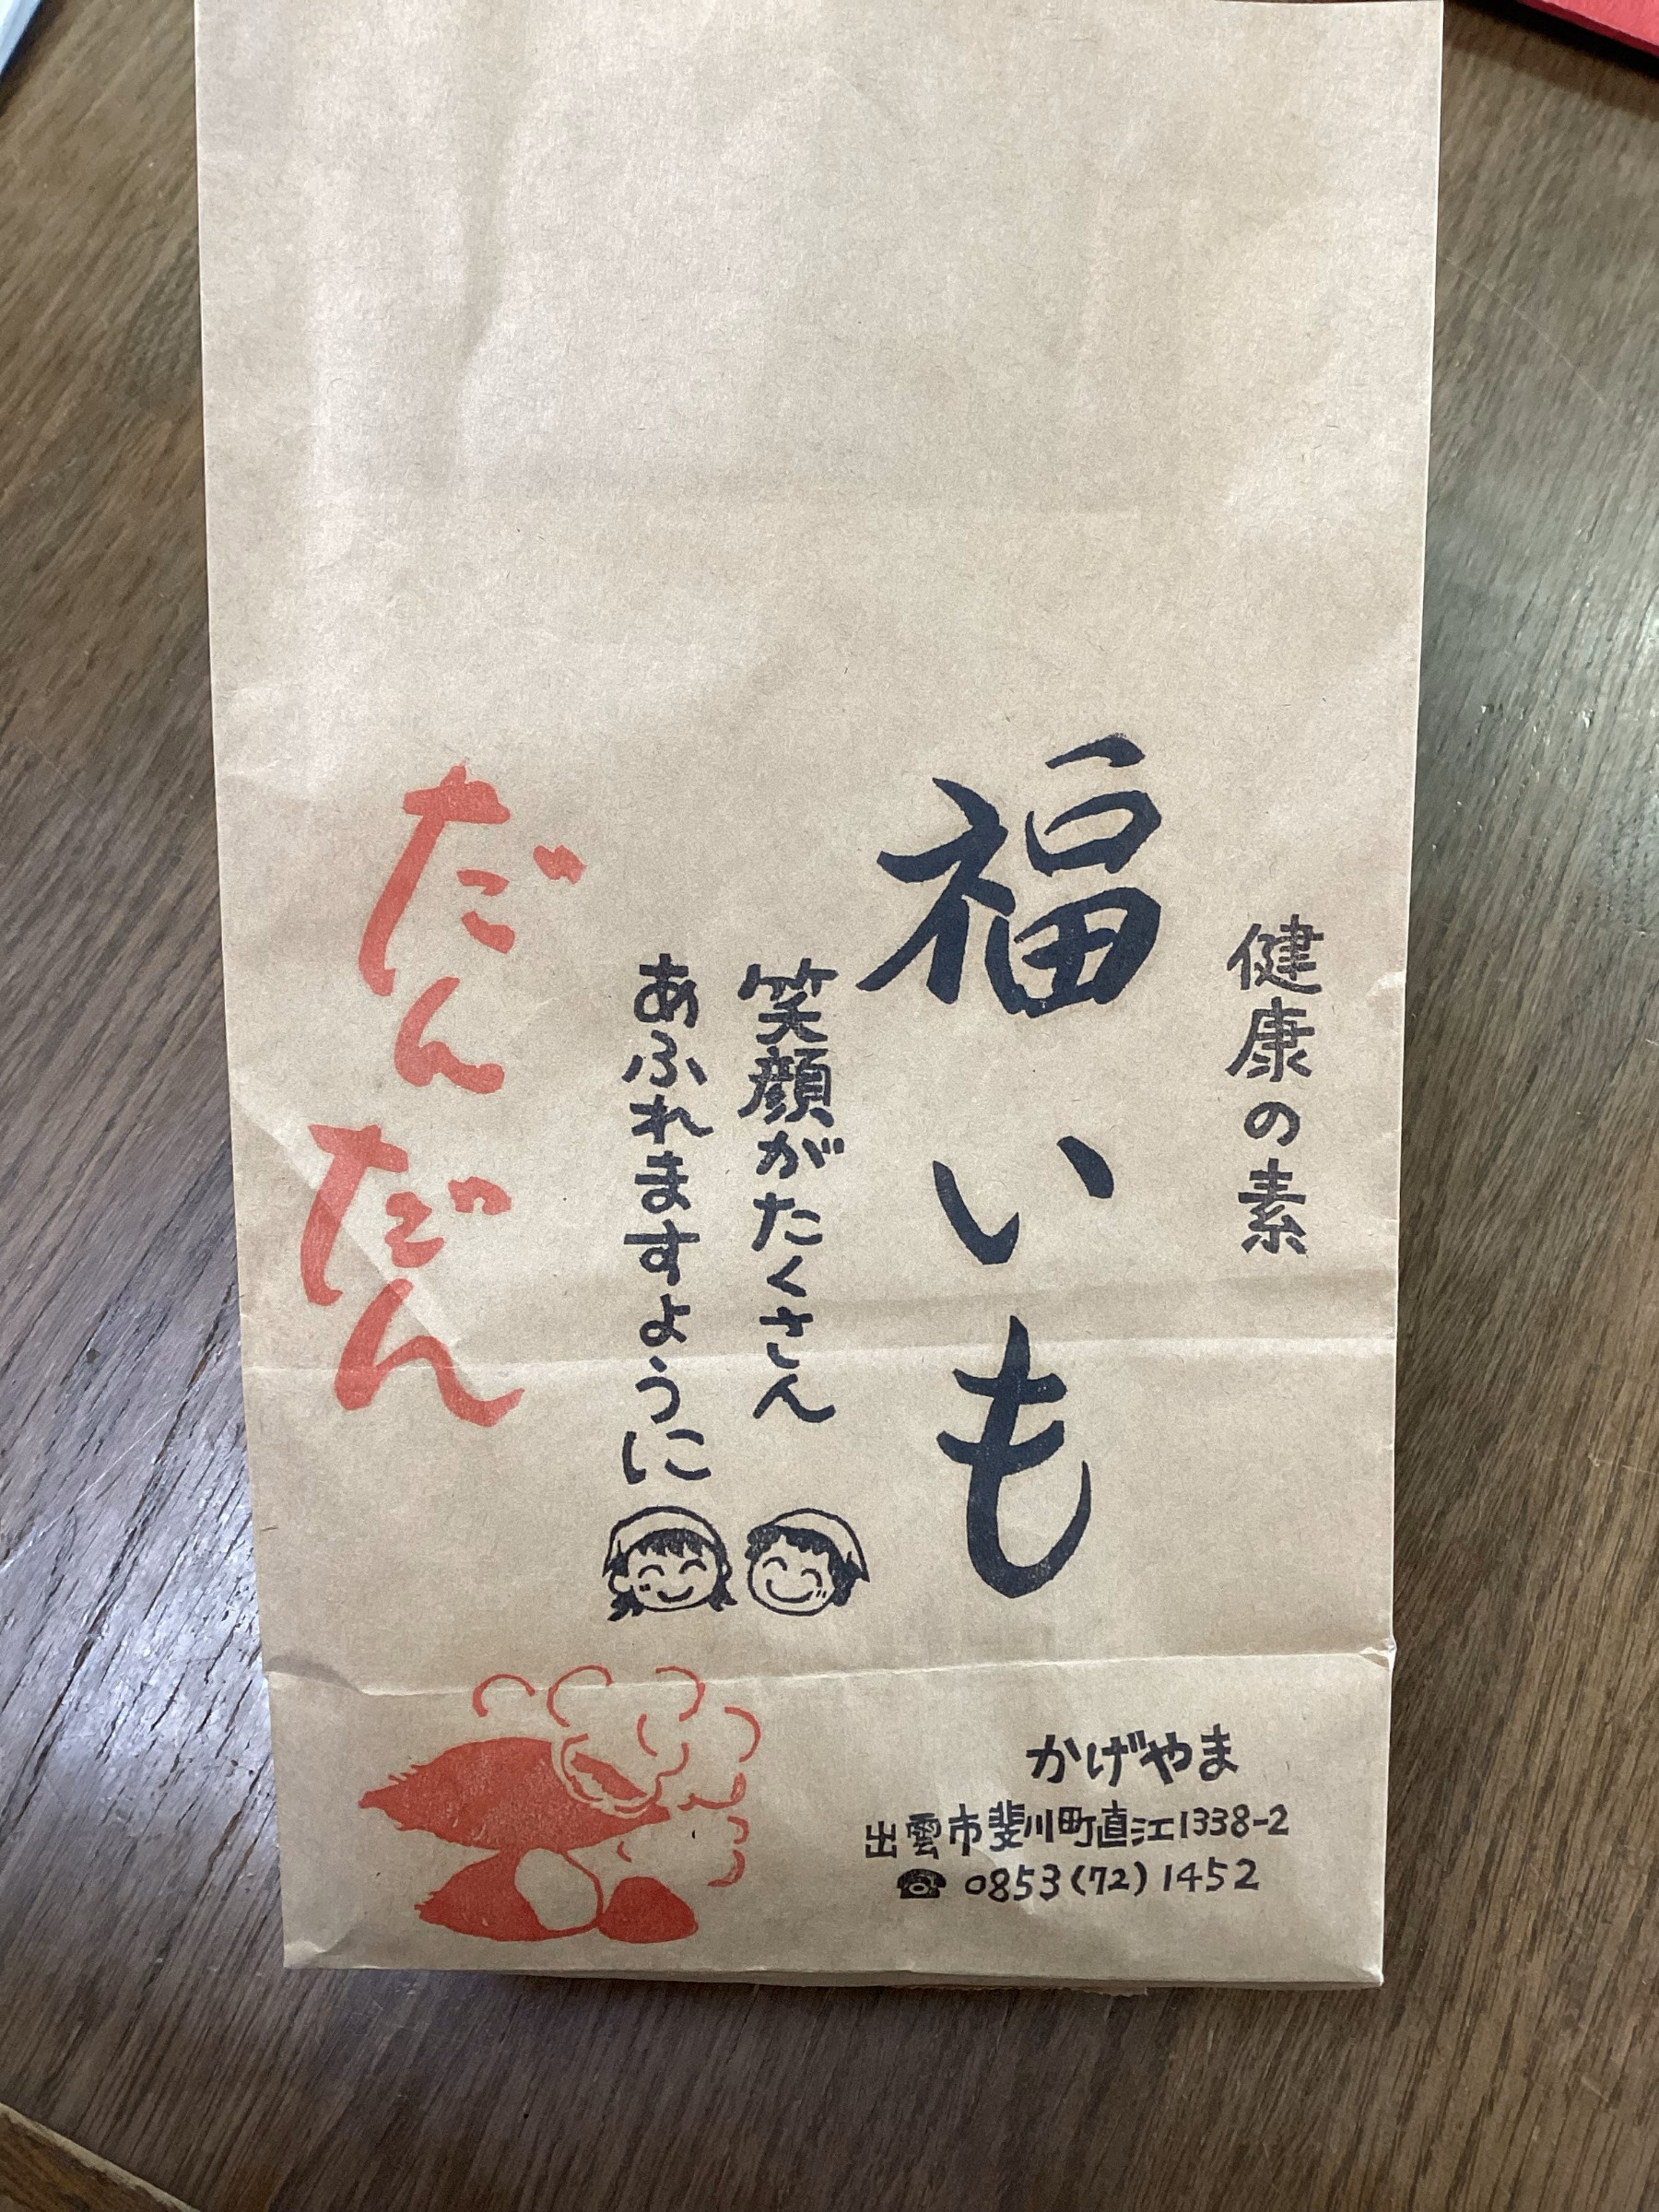 健康の素
福いも
笑顔がたくさん
あふれますように
だんだん
かげやま
出雲市斐川町直江1338-2
☎ 0853(72)1452